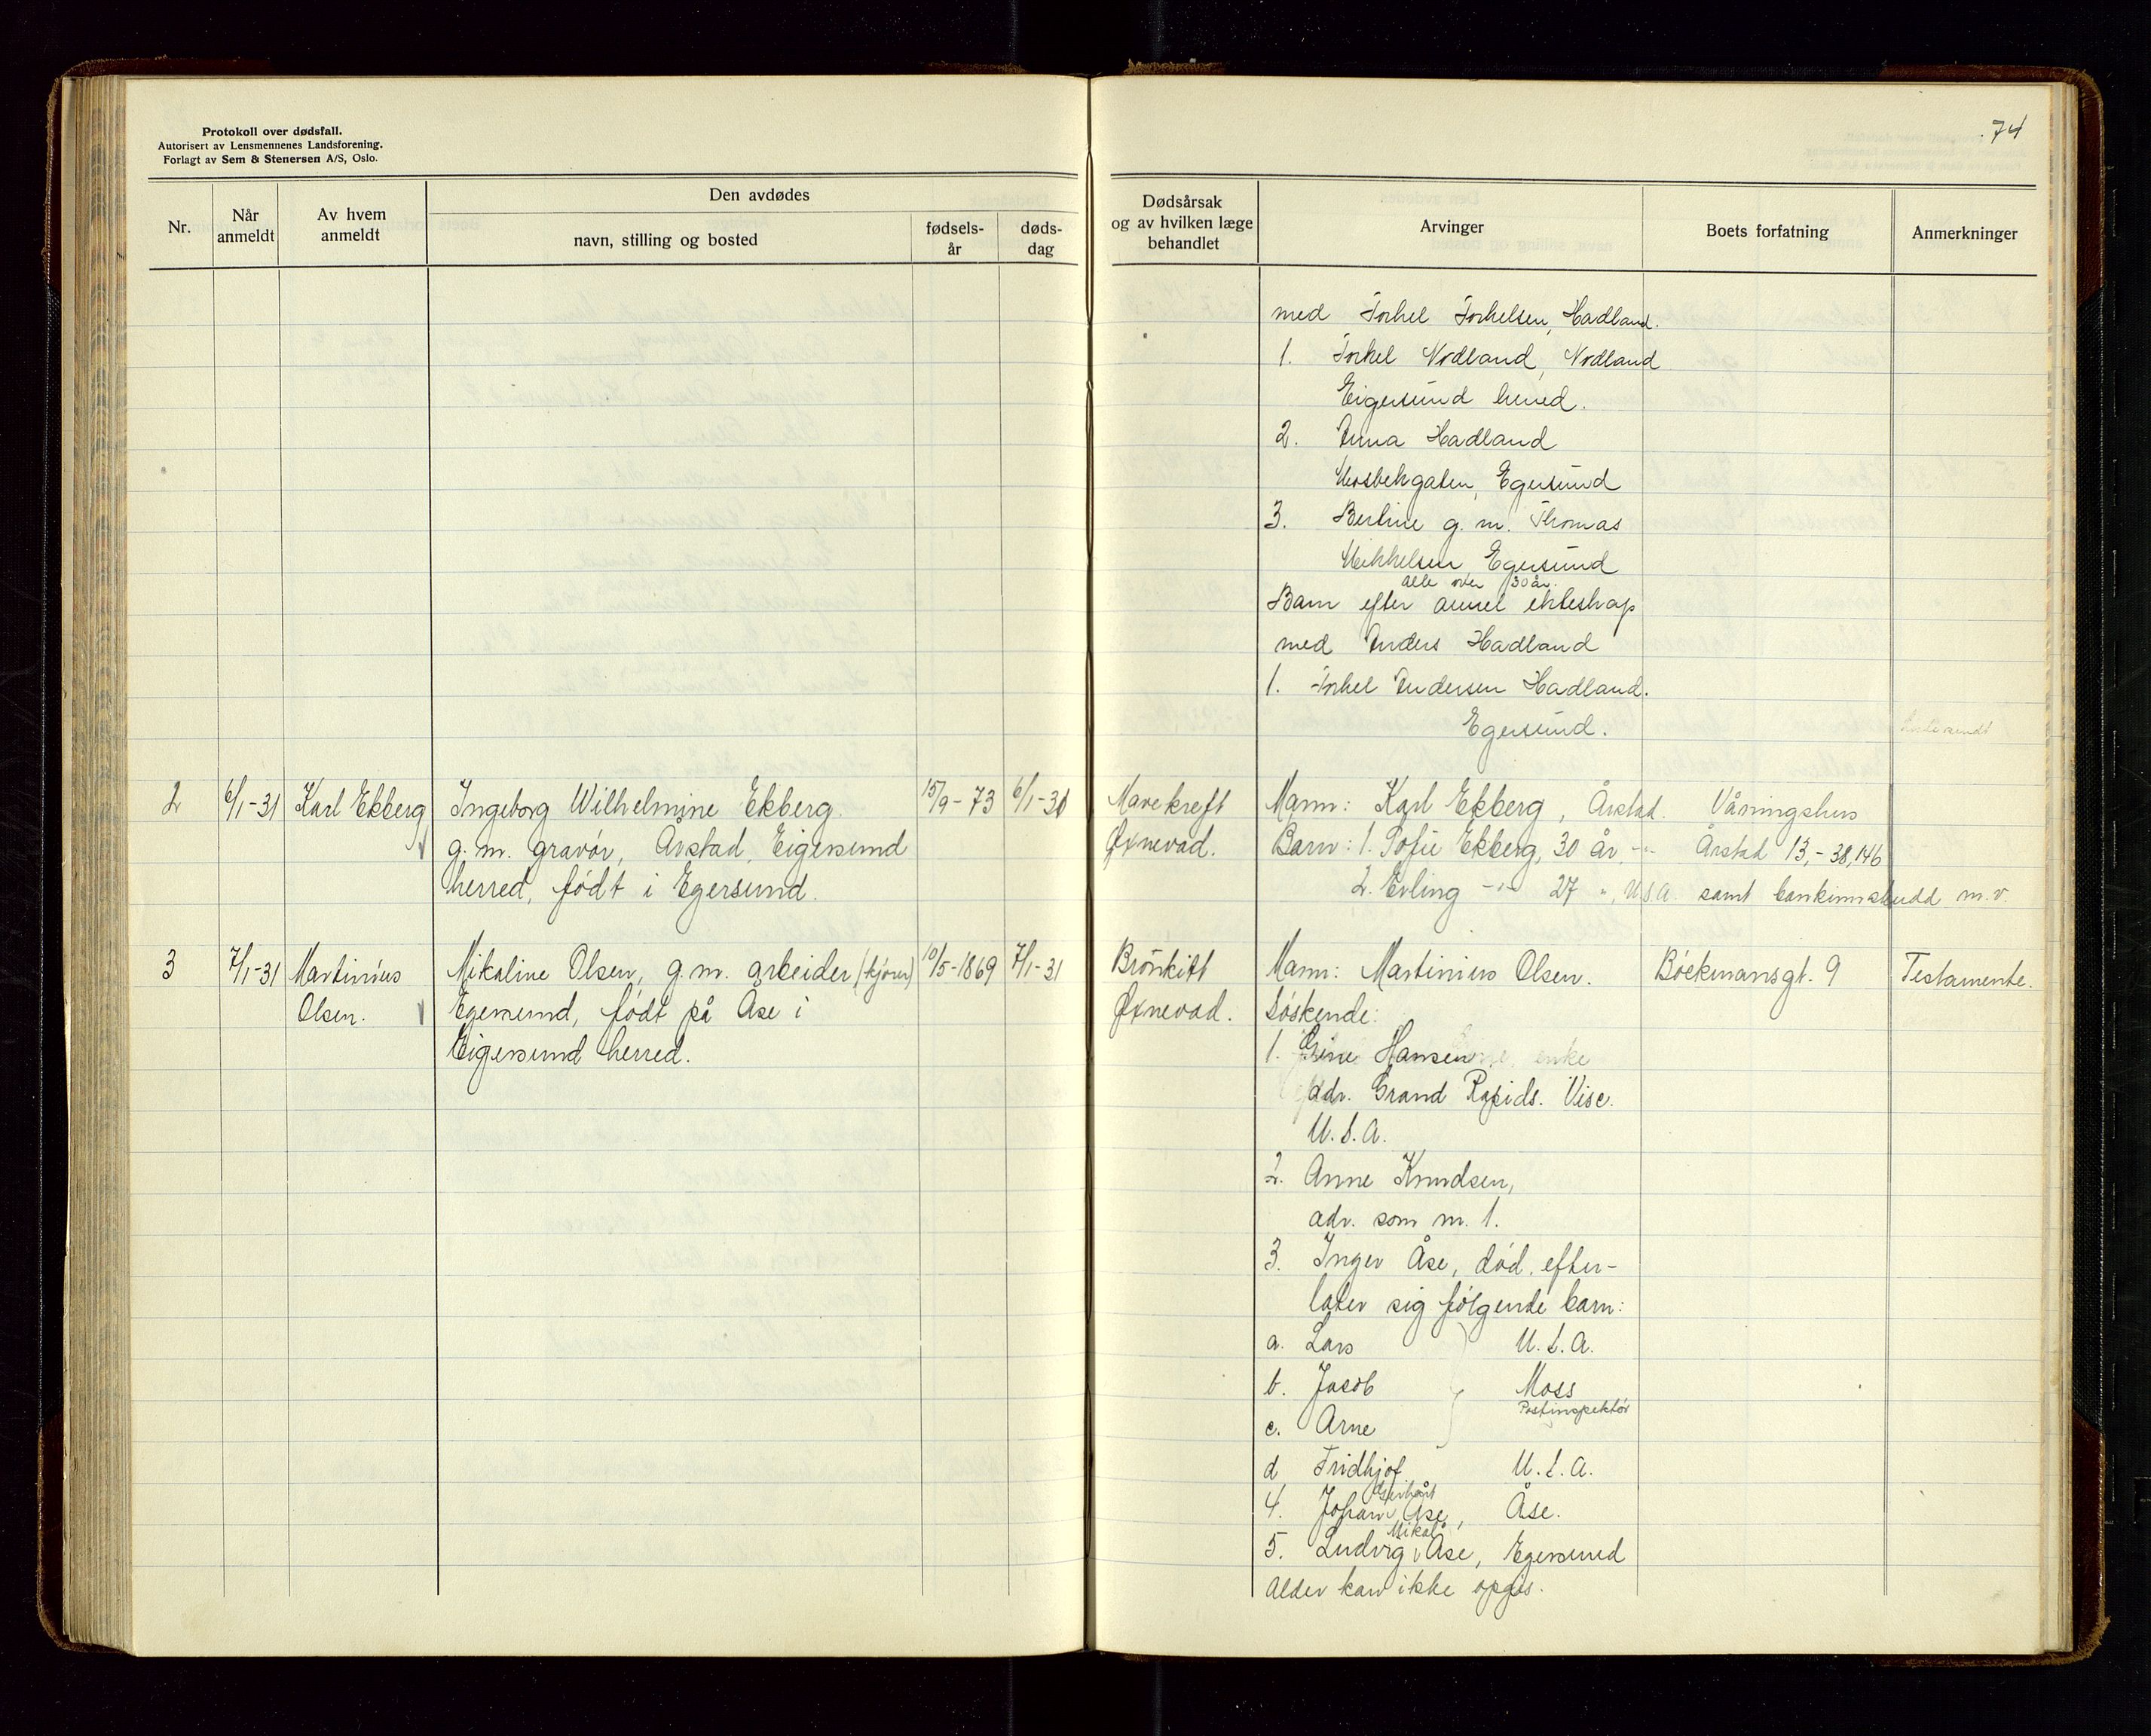 Protokoll over dødsfall.
Autorisert av Lensmennenes Landsforening.
Forlagt av Sem & Stenersen A/S, Oslo.
74
Nr.
Når anmeldt
Av hvem anmeldt
Den avdødes
navn, stilling og bosted
fødsels-
år
døds-
dag
Dødsårsak
og av hvilken læge
behandlet
Arvinger
Boets forfatning
Anmerkninger
med Torkel Torkelsen, Hadland.
1. Torkel Nodland, Nodland
Eigersund herred.
2. Anna Hadland
Mosbekgaten, Egersund
3. Bertine g. m. Thomas
Mikkelsen, Egersund
alle over 30 år.
Barn efter annet ekteskap
med Anders Hadland
1. Torkel Andersen Hadland.
Egersund.
2 6/1-31 Karl Ekberg Ingeborg Wilhelmine Ekberg. 15/9-73 6/1-31 Mavekreft Mann: Karl Ekberg, Årstad. Våningshus
g. m. gravør, Årstad, Eigersund Øxnevad. Barn: 1. Sofie Ekberg, 30 år, -"- Årstad 13,-38,146
herred, født i Egersund. 2. Erling -"- 27 ", U.S.A. samt bankinnskudd m.v.
3 7/1-31 Martinius Mikaline Olsen, g.m. arbeider (kjører) 10/5-1869 7/1-31 Bronkitt Mann: Martinius Olsen. Bøckmansgt. 9 Testamente.
Olsen. Egersund, født på Åse i Øxnevad. Søskende:
Eigersund herred. 1. Gine Hansen enke
adr. Grand Rapids. Visc.
U.S.A.
2. Anne Knudsen,
adr. som nr. 1.
3. Inger Åse, død, efter-
later sig følgende barn:
a. Lars U.S.A.
b. Jacob Moss
Postinspektør
c. Arne
d Fridhjof U.S.A.
Gerhart
4. Johan Åse, Åse.
Mikal
5. Ludvig Åse, Egersund
Alder kan ikke opgis.